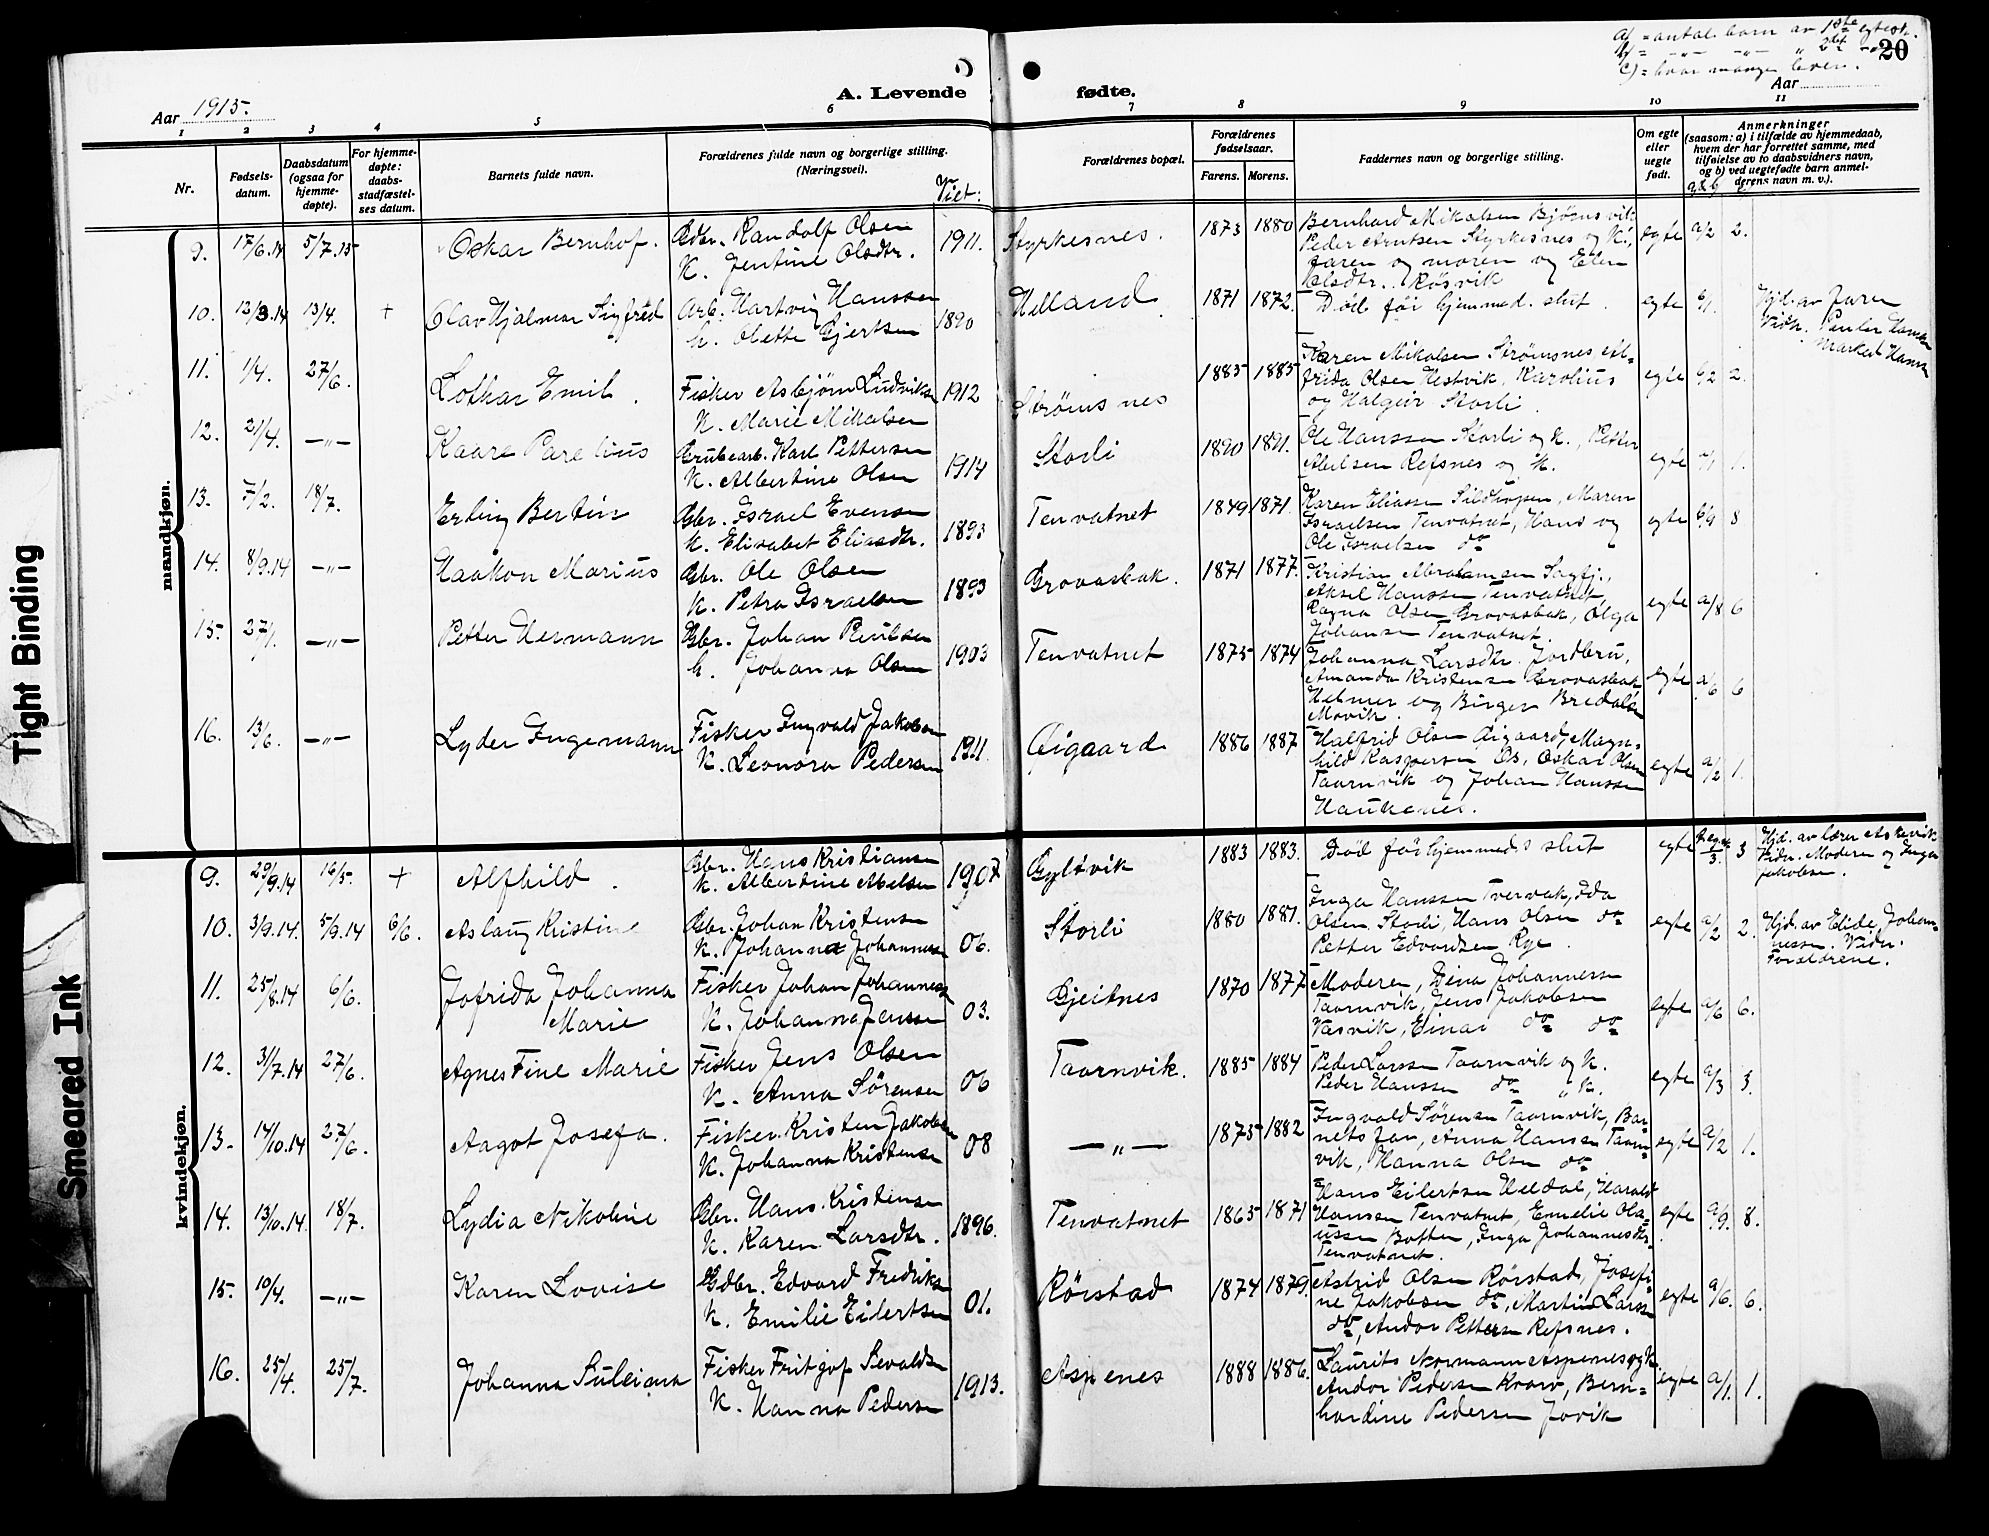 a) = antal barn av 1ste egtesk.
b) = -"- -"- " 2det -"-
c) = hvor mange lever.
20
A. Levende fødte.
Aar 1915. Aar
1 2 3 4 5 6 7 8 9 10 11
Nr.
Fødsels-
datum.
Daabsdatum
(ogsaa for
hjemme-
døpte).
For hjemme-
døpte:
daabs-
stadfæstel-
ses datum.
Barnets fulde navn.
Forældrenes fulde navn og borgerlige stilling.
(Næringsvei).
Viet:
Forældrenes bopæl.
Forældrenes
fødselsaar.
Farens. Morens.
Faddernes navn og borgerlige stilling.
Om egte
eller
uegte
født.
Anmerkninger
(saasom: a) i tilfælde av hjemmedaab,
hvem der har forrettet samme, med
tilføielse av to daabsvidners navn,
og b) ved uegtefødte barn anmel-
derens navn m. v.).
a & b c
mandkjøn.
9. 17/6.14 5/7.15 Oskar Bernhof. Gbr. Randolf Olsen
K. Jentine Olsdtr. 1911. Styrkesnes. 1873 1880 Bernhard Mikalsen Bjørnsvik
Peder Arntsen Styrkesnes og K.,
faren og moren og Elen
Olsdtr. Røsvik egte a/2 2.
10. 12/3.14 13/4. + Olav Hjalmar Sigfred Arb. Hartvig Hanssen
K. Olette Gjertsen 1890 Helland 1871 1872. Død før hjemmed. slut. egte 6/1. Hjd. av faren
Vidn.
11. 1/4. 27/6. Lothar Emil. Fisker Asbjørn Ludviksen
K. Marie Mikalsen 1912 Strømsnes 1885 1885 Karen Mikalsen Strømsnes Al-
frida Olsen Hestvik, Karolius
og Halgeir Storli. egte 2.
12. 21/4. -"- Kaare Parelius Grubearb. Karl Pettersen
K. Albertine Olsen 1914 Storli 1890 1891. Ole Hanssen Storli og K., Petter
Abelsen Refsnes og K. egte 1.
13. 7/2. 18/7. Erling Bertin Gbr. Israel Evensen
K. Elisabet Eliasdtr. 1893 Tenvatnet 1849 1871. Karen Eliassen Sildhopen, Maren
Israelsen Tenvatnet, Hans og
Ole Israelsen do egte 8
14. 8/9.14 -"- Haakon Marius Gbr. Ole Olsen
K. Petra Israelsen 1893 Grovasbak. 1871 1877. Kristian Abrahamsen Sagfj.,
Aksel Hanssen Tenvatnet,
Ragna Olsen Grovasbak, Olga
Johansen Tenvatnet. egte a/8 6
15. 27/1. -"- Petter Hermann Gbr. Johan Paulsen
K. Johanna Olsen 1903 Tenvatnet 1875 1874 Johanna Larsdtr. Jordbru,
Amanda Kristensen Grovasbak
Helmer og Birger Bredalsen
Movik. egte a/6 6
16. 13/6. -"- Lyder Ingemann Fisker Ingvald Jakobsen
K. Leonora Pedersen 1911. Øigaard 1886 1887 Halfrid Olsen Øigaard, Magn-
hild Kaspersen Os, Oskar Olsen
Taarnvik og Johan Hanssen
Haukenes. egte a/2 1.
kvindekjøn.
9. 29/9.14 16/5. + Alfhild. Gbr. Hans Kristiansen
K. Albertine Abelsen 1907 Gyltvik 1883 1883. Død før hjemmed's slut egte 3 Hjd. av lærer Askevik
Vidn. Moderen og Inga
Jakobsen.
10. 3/9.14. 5/9.14 6/6. Aslaug Kristine Gbr. Johan Kristensen
K. Johanna Johannessen 06. Storli 1880 1881. Inga Hanssen Tvervak, Ida
Olsen Storli, Hans Olsen do
Petter Edvardsen Rye. egte a/2 2. Hjd. av Elide Johan-
nessen. Vidn.
Forældrene.
11. 25/8.14 6/6. Jofrida Johanna
Marie Fisker Johan Johannessen
K. Johanna Jenssen 03. Gjeitnes 1870 1877 Moderen, Dina Johannessen
Taarnvik, Jens Jakobsen
Væsvik, Einar do do egte a/6 6.
12. 3/7.14 27/6. Agnes Fine Marie Fisker Jens Olsen
K. Anna Sørensen 06 Taarnvik. 1885 1884 Peder Larssen Taarnvik og K.
Peder Hanssen do " K. egte a/3 3.
13. 14/10.14 27/6. Aagot Josefa. Fisker Kristen Jakobsen
K. Johanna Kristensen 08 -"- 1875 1882 Ingvald Sørensen Taarnvik, Bar-
nets far, Anna Hanssen Taarn-
vik, Hanna Olsen do egte a/2 1.
14. 13/10.14. 18/7. Lydia Nikoline Gbr. Hans Kristensen
K. Karen Larsdtr. 1896. Tenvatnet 1865 1871 Hans Eilertsen Heldal, Harald
Hansen Tenvatnet, Emelie Ola-
ussen Botten, Inga Johannesdtr.
Tenvatnet. egte a/9. 8.
15. 10/4. -"- Karen Lovise Gbr. Edvard Fredriksen
K. Emilie Eilertsen 01. Rørstad 1874 1879. Astrid Olsen Rørstad, Josefi-
ne Jakobsen do, Martin Larssen
do, Andor Pettersen Refsnes. egte a/6. 6.
16. 25/4. 25/7. Johanna Suleima Fisker Fritjof Sevaldsen
K. Hanna Pedersen 1913. Aspenes 1888 1886. Laurits Normann Aspenes og K.
Andor Pedersen Kraro, Bern-
hardine Pedersen Jovik egte a/1. 1.
Tight Binding
Smeared Ink